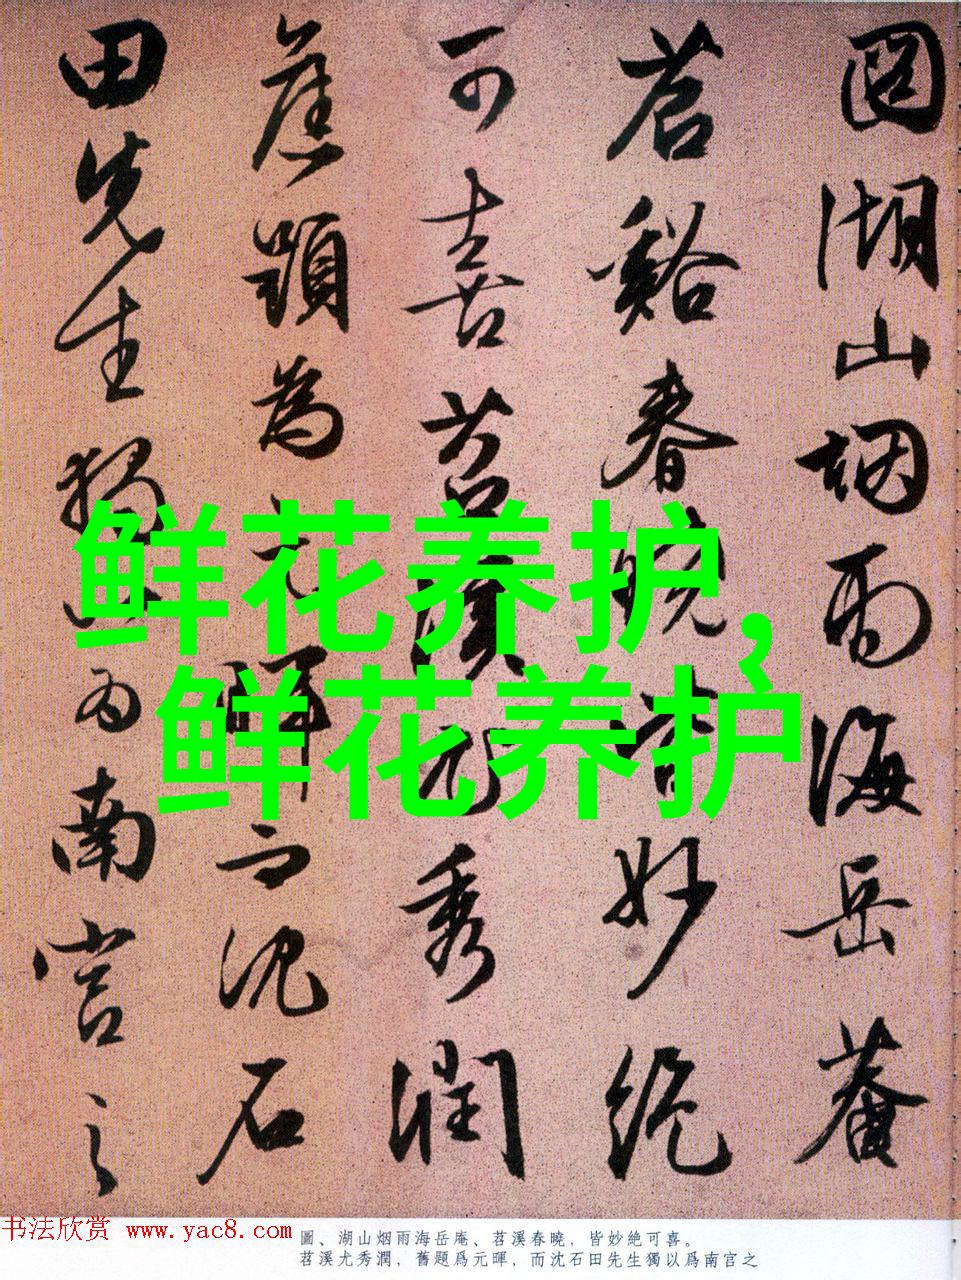 圖湖山烟雨海岳菴
苕谿春曉皆妙絶
可喜苕溪尤秀潤
舊題為元暉而沈石
田先生獨以為南宫之
鲜花养护，
鲜花养护
书法欣赏 www.yac8.com
圖、湖山烟雨海岳庵、苕溪春曉，皆妙絶可喜。
苕溪尤秀潤，舊題爲元暉，而沈石田先生獨以爲南宫之